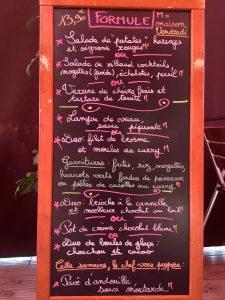 13,90€ FORMULE M = maison
Vendredi
* Salade de patates harengs
et oignons rouges M
ou
* Salade de
mogettes (froide), échalotes, persil M
ou
* Verrine de chèvre frais et
tartare de truite M
* Langue de veau,
sauce piquante M
ou
* Duo: filet de
et moules au curry M
Garnitures: frites, riz, mogettes
haricots verts fondue de poireaux
ou poêlée de carottes au curry M
* Duo: brioche à la cannelle
et moelleux chocolat au lait M
ou
* Pot de crème chocolat blanc M
ou
* Duo de boules de glace:
et cacao
Cette semaine, le chef vous propose:
* Pavé d'andouille
sauce moutarde M